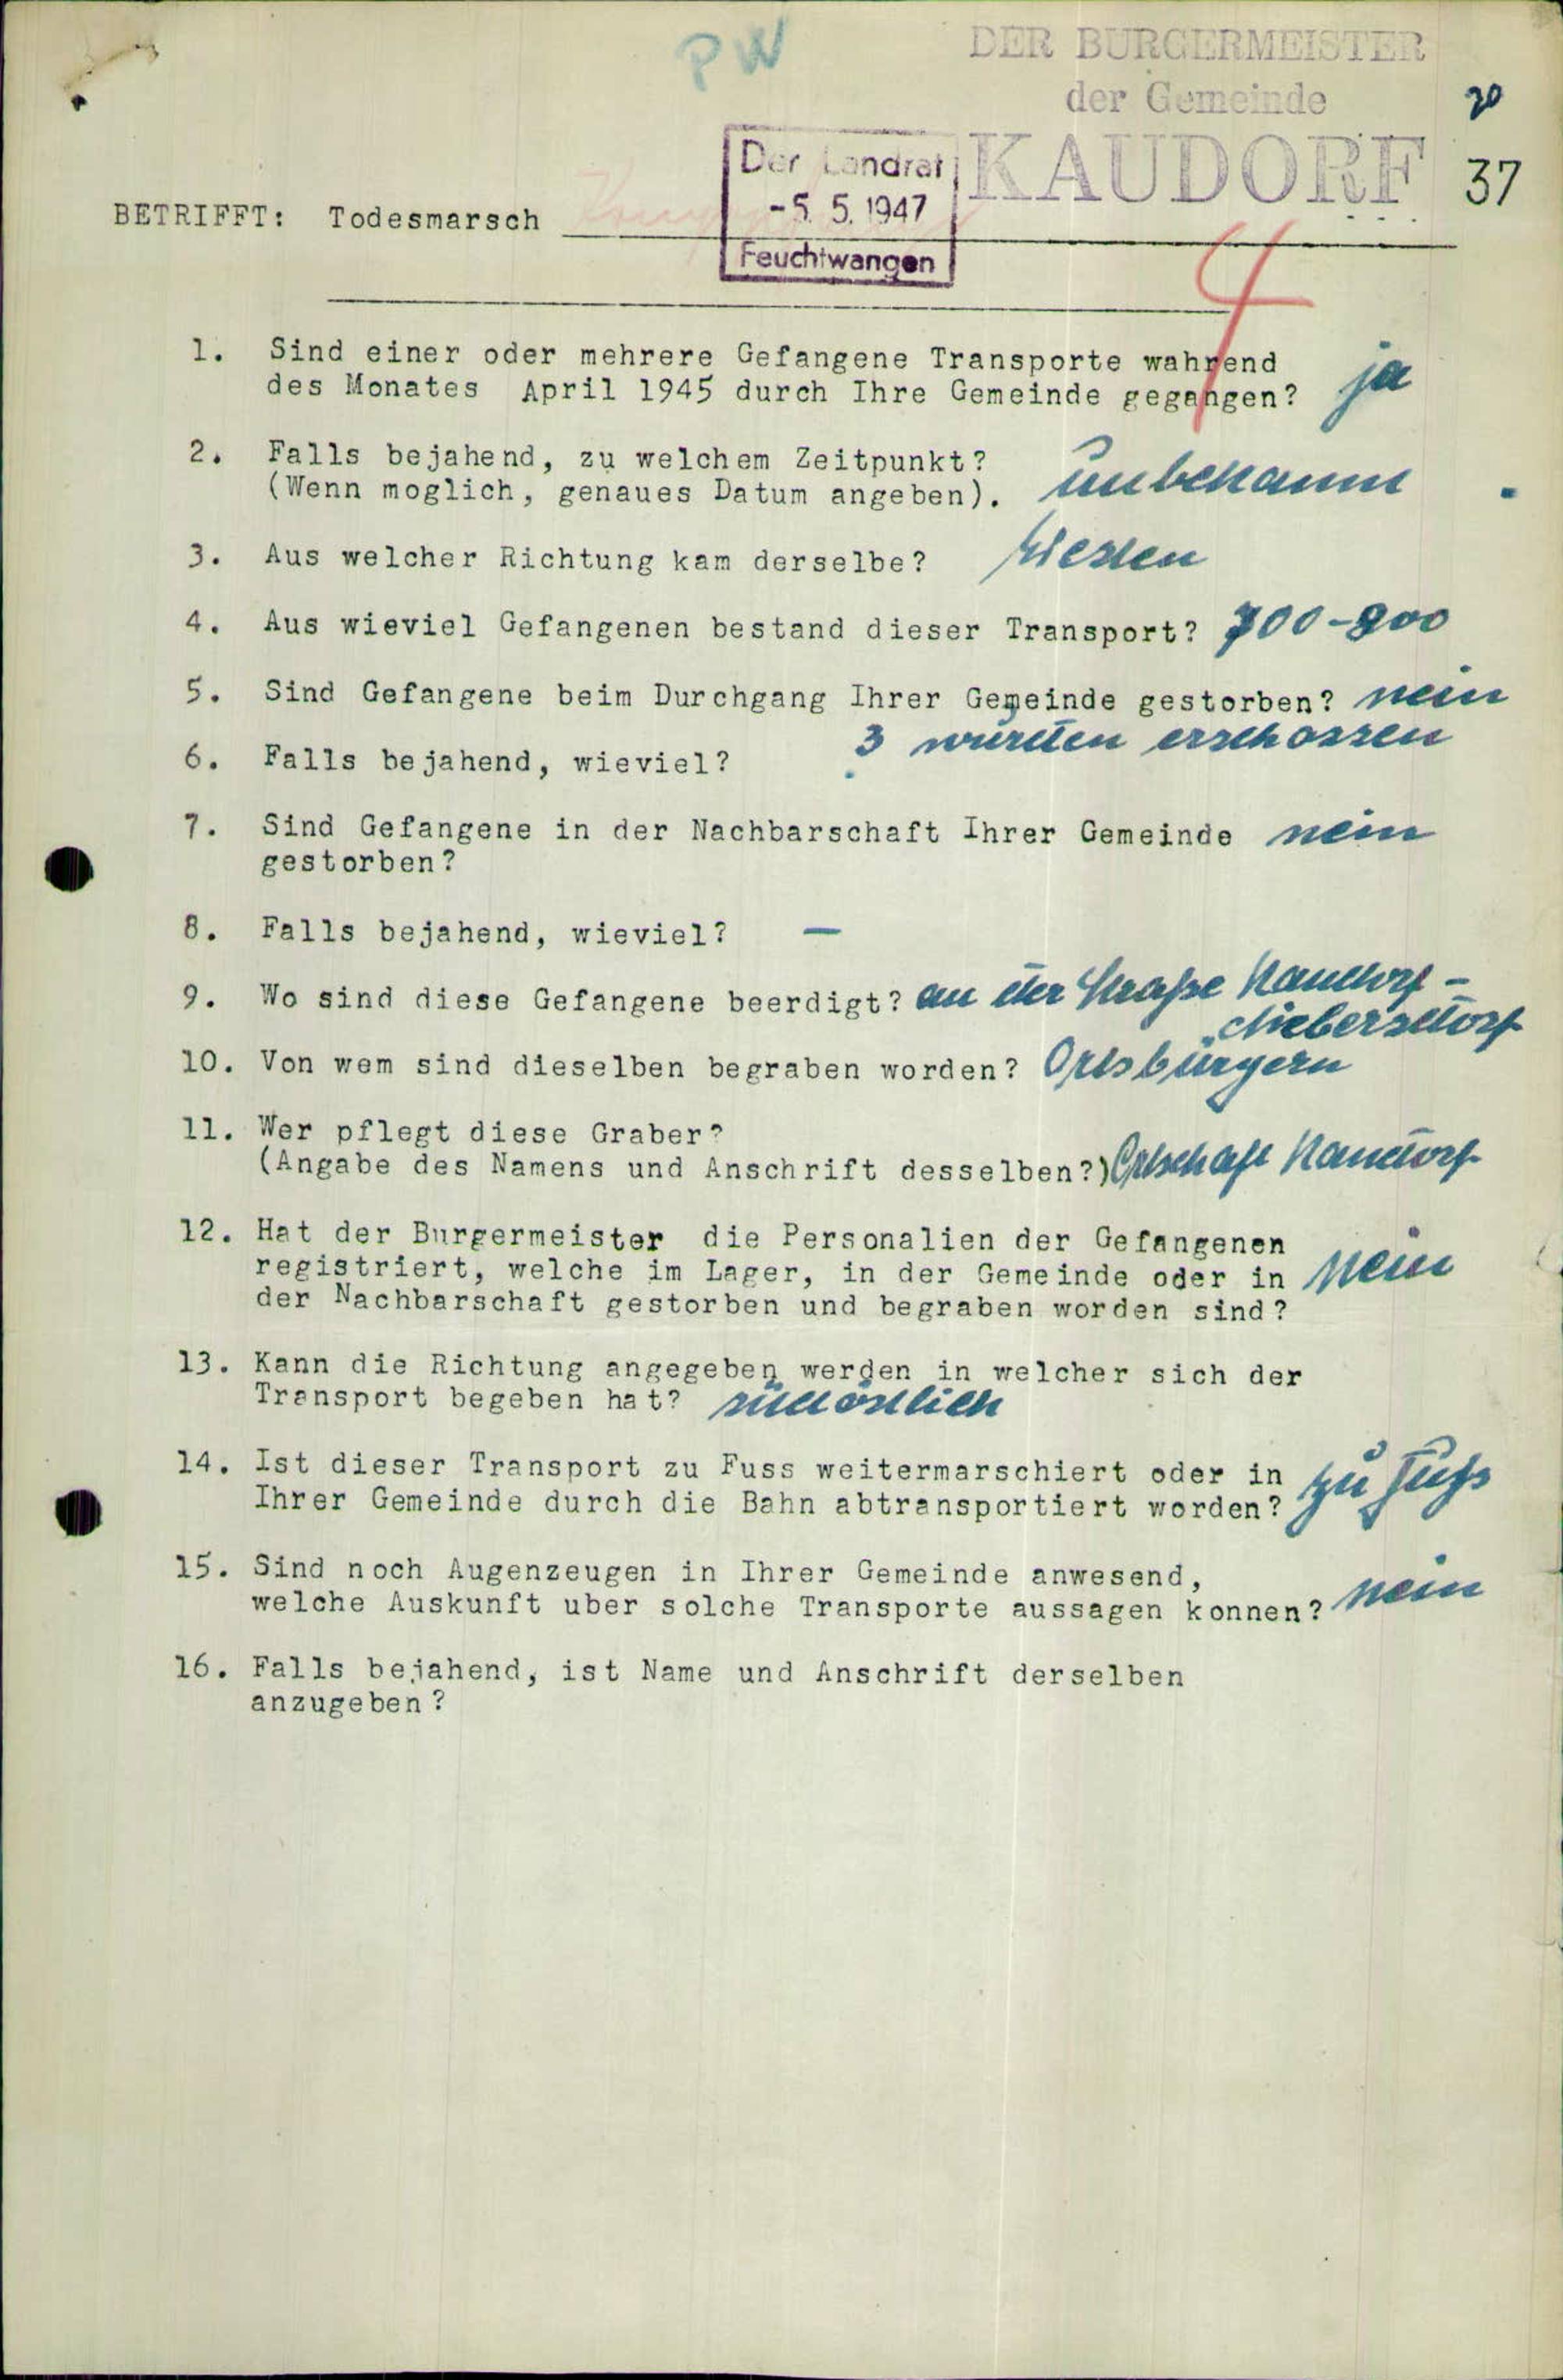 PW
DER BURGERMEISTER
der Gemeinde
KAUDORF
20
37
Der Landrat
-5. 5. 1947
Feuchtwangen
BETRIFFT: Todesmarsch
4
1. Sind einer oder mehrere Gefangene Transporte wahrend
des Monates April 1945 durch Ihre Gemeinde gegangen? ja
2. Falls bejahend, zu welchem Zeitpunkt?
(Wenn moglich, genaues Datum angeben). unbekannt
3. Aus welcher Richtung kam derselbe? Westen
4. Aus wieviel Gefangenen bestand dieser Transport? 700-800
5. Sind Gefangene beim Durchgang Ihrer Gemeinde gestorben? nein
3 wurden erschossen
6. Falls bejahend, wieviel?
7. Sind Gefangene in der Nachbarschaft Ihrer Gemeinde nein
gestorben?
8. Falls bejahend, wieviel? —
9. Wo sind diese Gefangene beerdigt? an der Straße Kaudorf -
Liebersdorf
10. Von wem sind dieselben begraben worden? Ortsbürgern
11. Wer pflegt diese Graber?
(Angabe des Namens und Anschrift desselben?) Ortschaft Kaudorf
12. Hat der Burgermeister die Personalien der Gefangenen
registriert, welche im Lager, in der Gemeinde oder in nein
der Nachbarschaft gestorben und begraben worden sind?
13. Kann die Richtung angegeben werden in welcher sich der
Transport begeben hat? südöstlich
14. Ist dieser Transport zu Fuss weitermarschiert oder in zu Fuß
Ihrer Gemeinde durch die Bahn abtransportiert worden?
15. Sind noch Augenzeugen in Ihrer Gemeinde anwesend,
welche Auskunft uber solche Transporte aussagen konnen? nein
16. Falls bejahend, ist Name und Anschrift derselben
anzugeben?